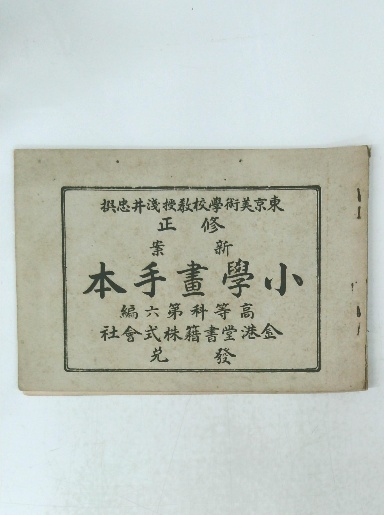 東京美術學校敎授淺井忠撰
修正
新案
小學畫手本
高等科第六編
金港堂書籍株式會社
發兌